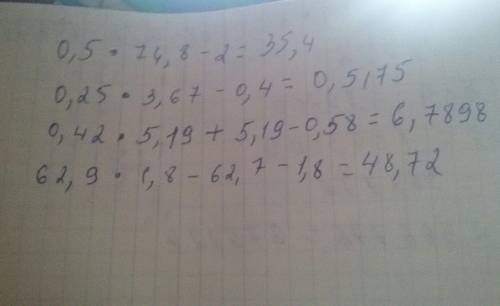 0,5 • 74,8 - 2 = 35,4
0,25 • 3,67 - 0,4 = 0,5175
0,42 • 5,19 + 5,19 - 0,58 = 6,7898
62,9 • 1,8 - 62,7 - 1,8 = 48,72